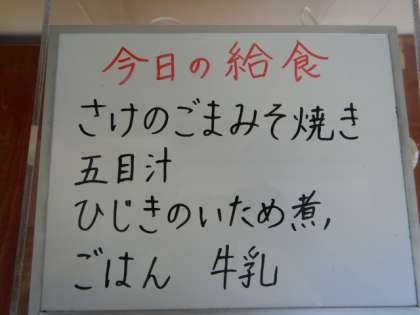 今日の給食
さけのごまみそ焼き
五目汁
ひじきのいため煮,
ごはん 牛乳